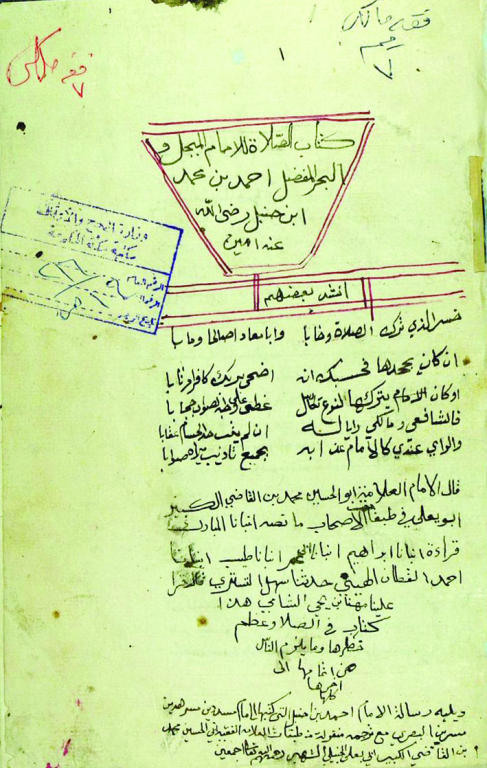 فقه حنبلي
٧
١
كتاب الصلاة للامام المبجل و
البحر المفضل احمد بن محمد
ابن حنبل رضى الله
عنه امين
وزارة الحج والأوقاف
مكتبة مكة المكرمة
انشد بعضهم
خسر الذي ترك الصلاة وخابا وابا معادا صالحا ومابا
ان كان يجحدها فحسبك انه اضحى بربك كافرا مرتابا
او كان الامام يتركها لنوع تكاسل غطى على وجه الصواب حجابا
فالشافعي ومالكي رايا له ان لم يتب حد الحسام عقابا
والراي عندي للامام عذابه بجميع تاديب يراه صوابا
قال الامام العلامة ابو الحسين محمد بن القاضي الكبير
ابو يعلى في طبقات الاصحاب ما نصه انبانا المبارك
قراءة انبانا ابراهيم انبانا
احمد القطان الهيتي حدثنا سهل التستري
علينا مهنا بن يحي الشامي هذا
كتاب في الصلاة وعظم
خطرها وما يلزم الناس
من اتمامها الى
اخرها
ويليه رسالة الامام احمد بن حنبل التي كتبها لمسدد بن مسرهد بن
مسربل البصري مع ترجمة منقولة من طبقات العلامة الفقيه ابي الحسين محمد
بن القاضي الكبير ابي يعلى الحنبلي الشهير اجمعين